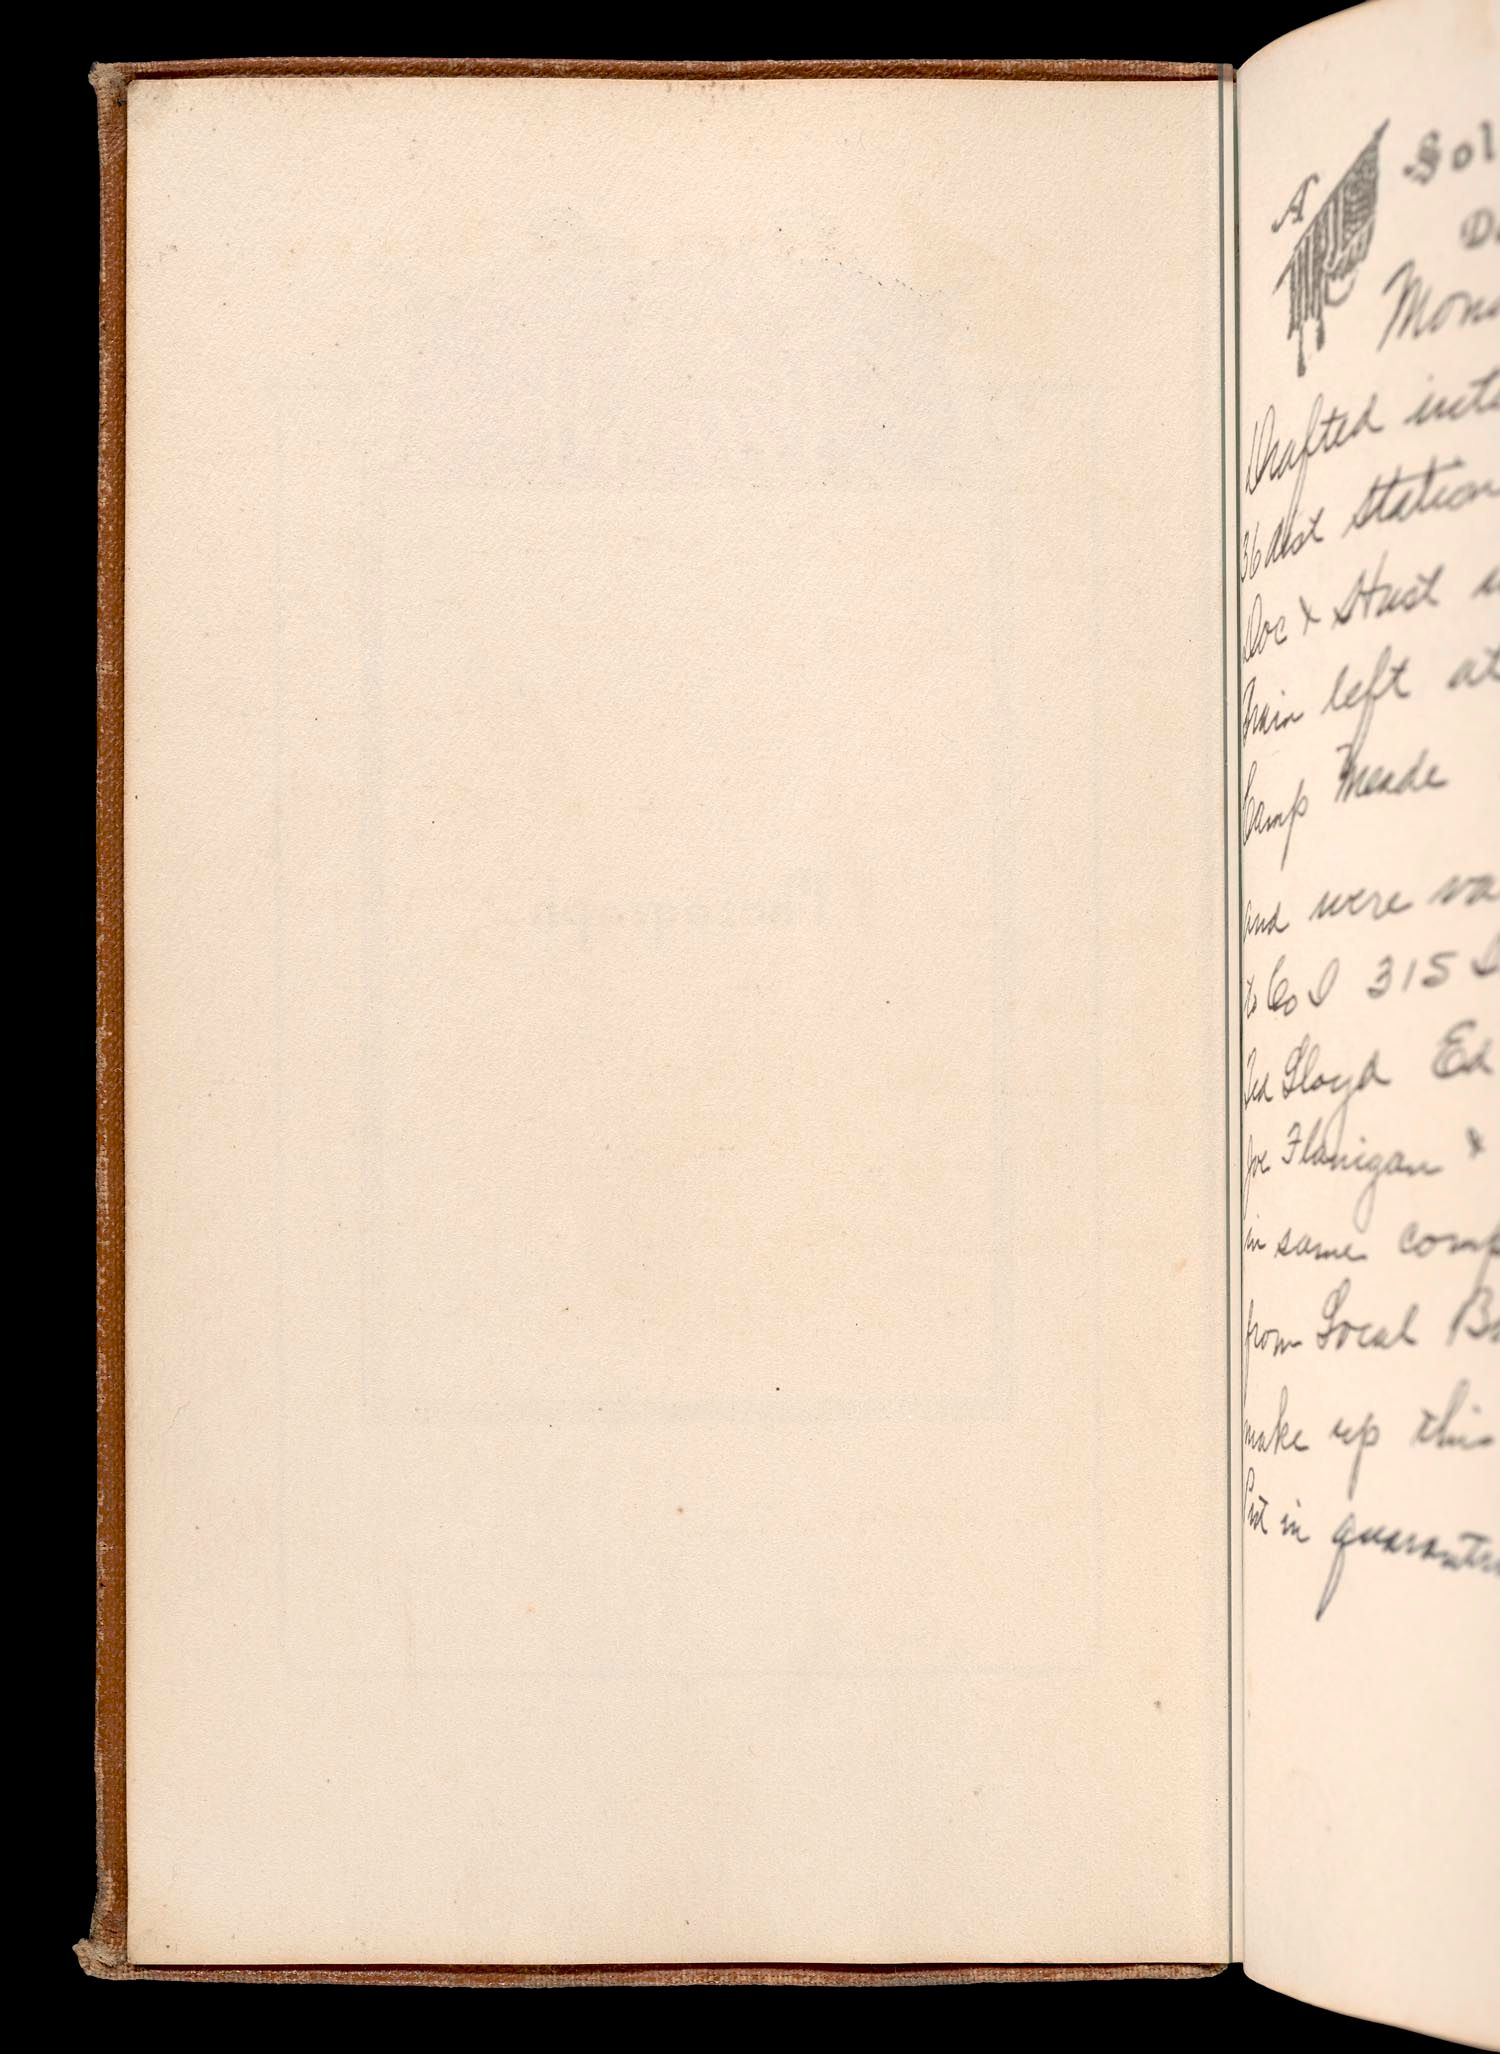 A Sol
Mon
Drafted into
36 dist Station
Doc & Hust
Train left at
Camp Meade
and were va
to Co I 315
Ted Lloyd Ed
Joe Flanigan &
in same comp
from Local B
make up this
Put in quarantin